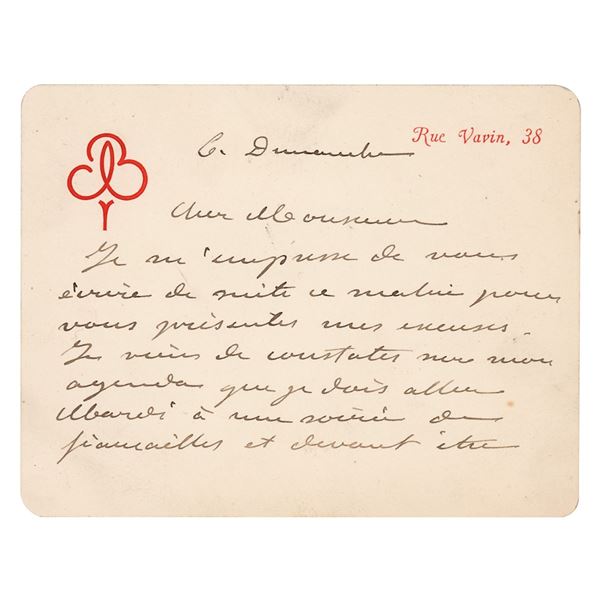 Rue Vavin, 38
Ce Dimanche
Cher Monsieur
Je m'empresse de vous
écrire de suite ce matin pour
vous présenter mes excuses.
Je viens de constater sur mon
agenda que je dois aller
Mardi à une soirée de
fiancailles et devant être